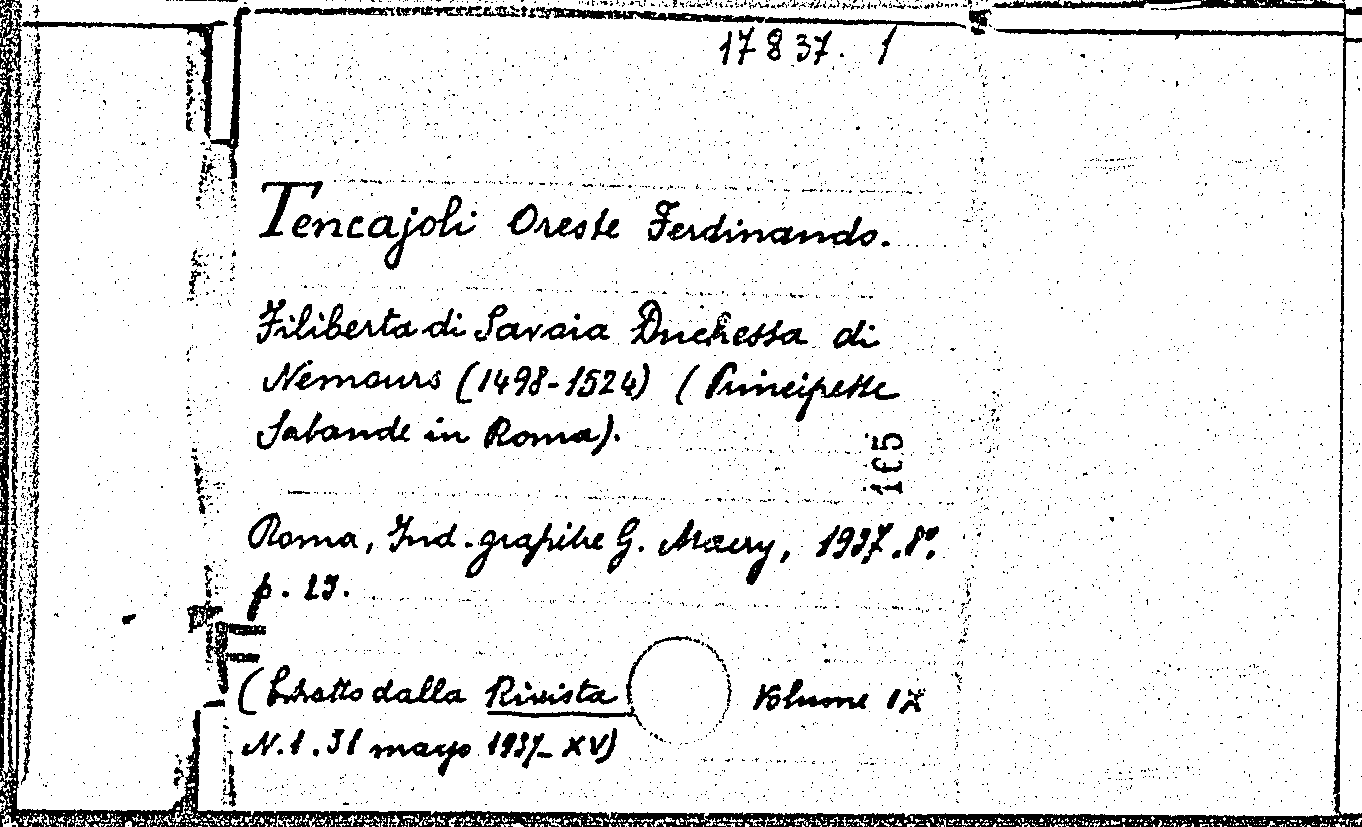 17837. 1
Tencajoli Oreste Ferdinando.
Filiberta di Savoia Duchessa di
Nemours (1498-1524) (Principesse
Sabaude in Roma).
165
Roma, Ind. grafiche G. 1937. 8º.
p. 19.
(Estratto dalla Rivista Volume IX
N.1. 31 marzo 1937-XV)